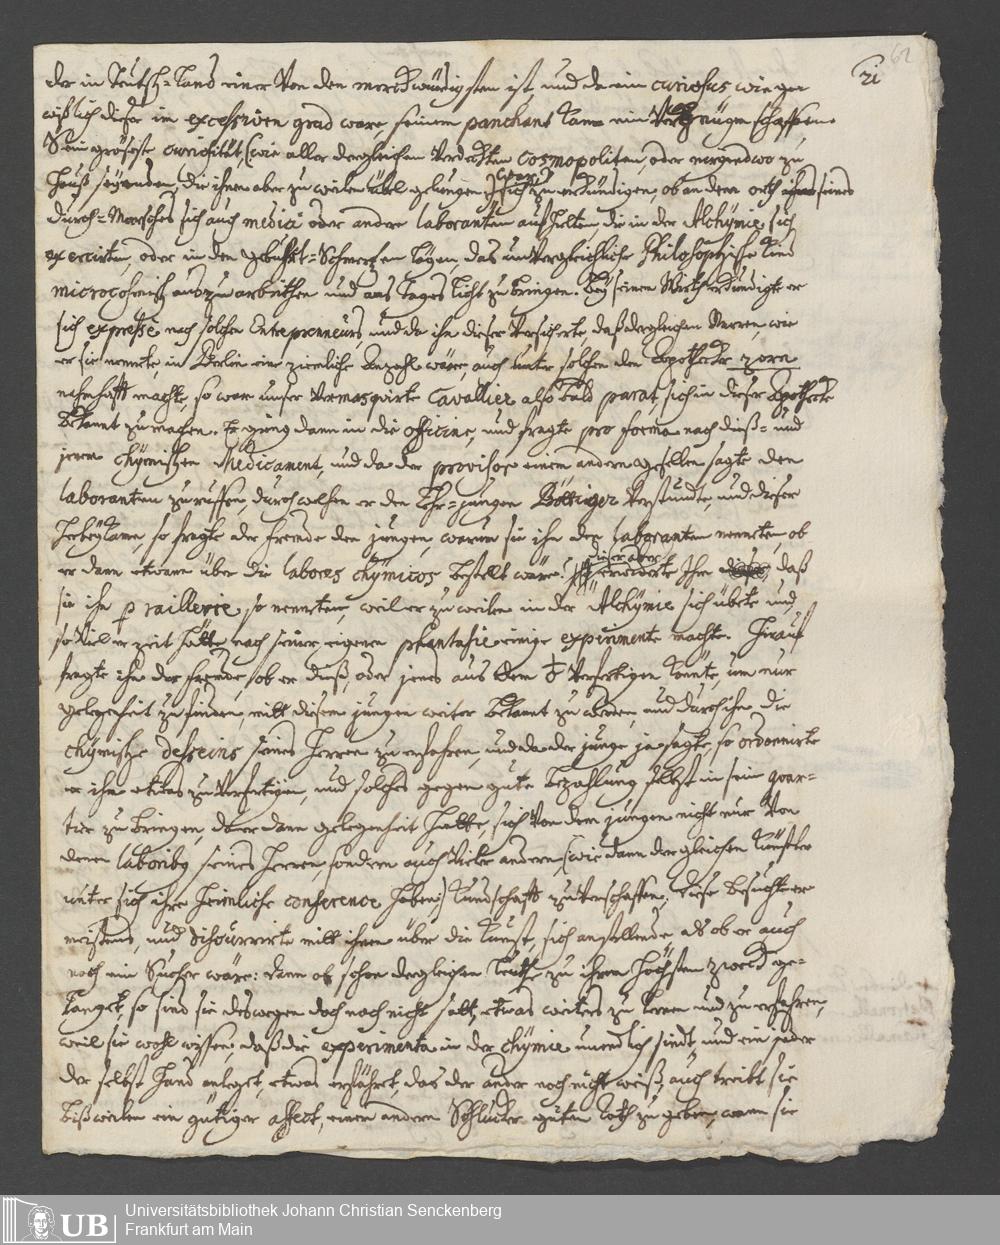 62
21
der in Teutsch-Land einer von den merckwürdigsten ist, und da ein curiosus wie ge-
wißlich dieser im excessiven grad ware, seinem panchant kan ein Vergnügen schaffen.
Sein gröseste curiosität, (wie aller dergleichen verdeckten Cosmopoliten, oder nergendwo zu
Hauß seyenden, die ihnen aber zu weilen übel gelungen,) ware sich zu erkündigen, ob an dem orth seines
durch-Marsches sich auch medici oder andre laboranten aufhielten die in der Alchymie sich
exercirten, oder in den gebuhrt-Schmerzen lägen, das unvergleichliche Philosophische Kind
microcosmisch auszuarbeithen und ans Tages licht zu bringen. Bey seinem Wirth erkundigte er
sich expresse nach solchen Entrepreneurs, und da ihn dieser versicherte, daß dergleichen Narren, wie
er sie nennte, in Berlin eine ziemliche Anzahl wäre, auch unter solchen den Apothecker zorn
nahmhafft machte, so war unser vermasquirte Cavallier also bald parat, sich in dieser Apothecke
bekannt zu machen. Er gieng dann in die officine, und fragte pro forma nach dieß- und
jenem chymischen Medicament, und da der provisor einem andern gesellen sagte den
laboranten zu ruffen, durch welchen er den Lehr-jungen Böttiger verstundte, und dieser
herbey kame, so fragte der fremde den jungen, warum sie ihn den laboranten nennten, ob
er dann etwann über die labores chymicos bestellt wäre? dieser aber erwiderte Ihm, daß
sie ihn p raillerie so nennten, weil er zu weilen in der Alchymie sich übete und
so viel er zeit hätte nach seiner eigenen phantasie einige experimente machte. Hierauf
fragte ihn der fremde, ob er dieß oder jenes aus dem ♁ verfertigen könte, um nur
gelegenheit zu finden, mitt diesem jungen weiter bekant zu werden, und durch ihn die
chymische desseins seines Herren zu erfahren, und da der junge ja sagte, so ordonnirte
er ihm etwas zu verfertigen, und solches gegen gute bezahlung selbst in sein quar-
tier zu bringen, da er dann gelegenheit hatte, sich von dem jungen nicht nur von
denen laboribus seines Herren, sondern auch vieler andern, (wie dann dergleichen Künstler
unter sich ihre heimliche conference haben,) kundschafft zu verschaffen. Diese besuchte er
meistens, und discurrirte mitt ihnen über die Kunst, sich anstellende als ob er auch
noch ein Sucher wäre: dann ob schon dergleichen Leuthe zu ihrem höchsten zweck ge-
langet, so sind sie deswegen doch noch nicht satt, etwas weiters zu lernen und zu erfahren,
weil sie wohl wissen, daß die experimenta in der chymie unendlich sindt, und ein jeder
der selbst Hand anleget, etwas erfähret, das der ander noch nicht weiß, auch treibt sie
bißweilen ein gütiger affect, einen andern Schlucker guten Rath zu geben, wann sie
UB Universitätsbibliothek Johann Christian Senckenberg
Frankfurt am Main